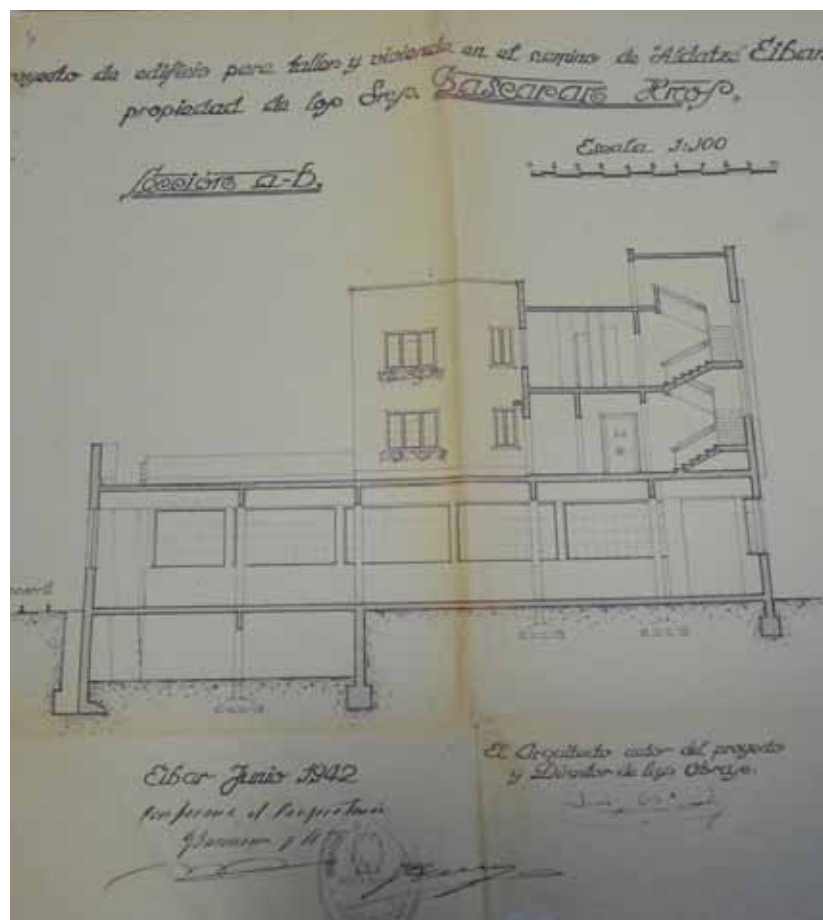 royecto de edificio para taller y vivienda en el camino de "Aldatze" Eibar
propiedad de los Sres. Bascaran Hnos.
Sección a-b.
Escala 1:100
Eibar Junio 1942
Conforme el Propietario
El Arquitecto autor del proyecto
y Director de las Obras.